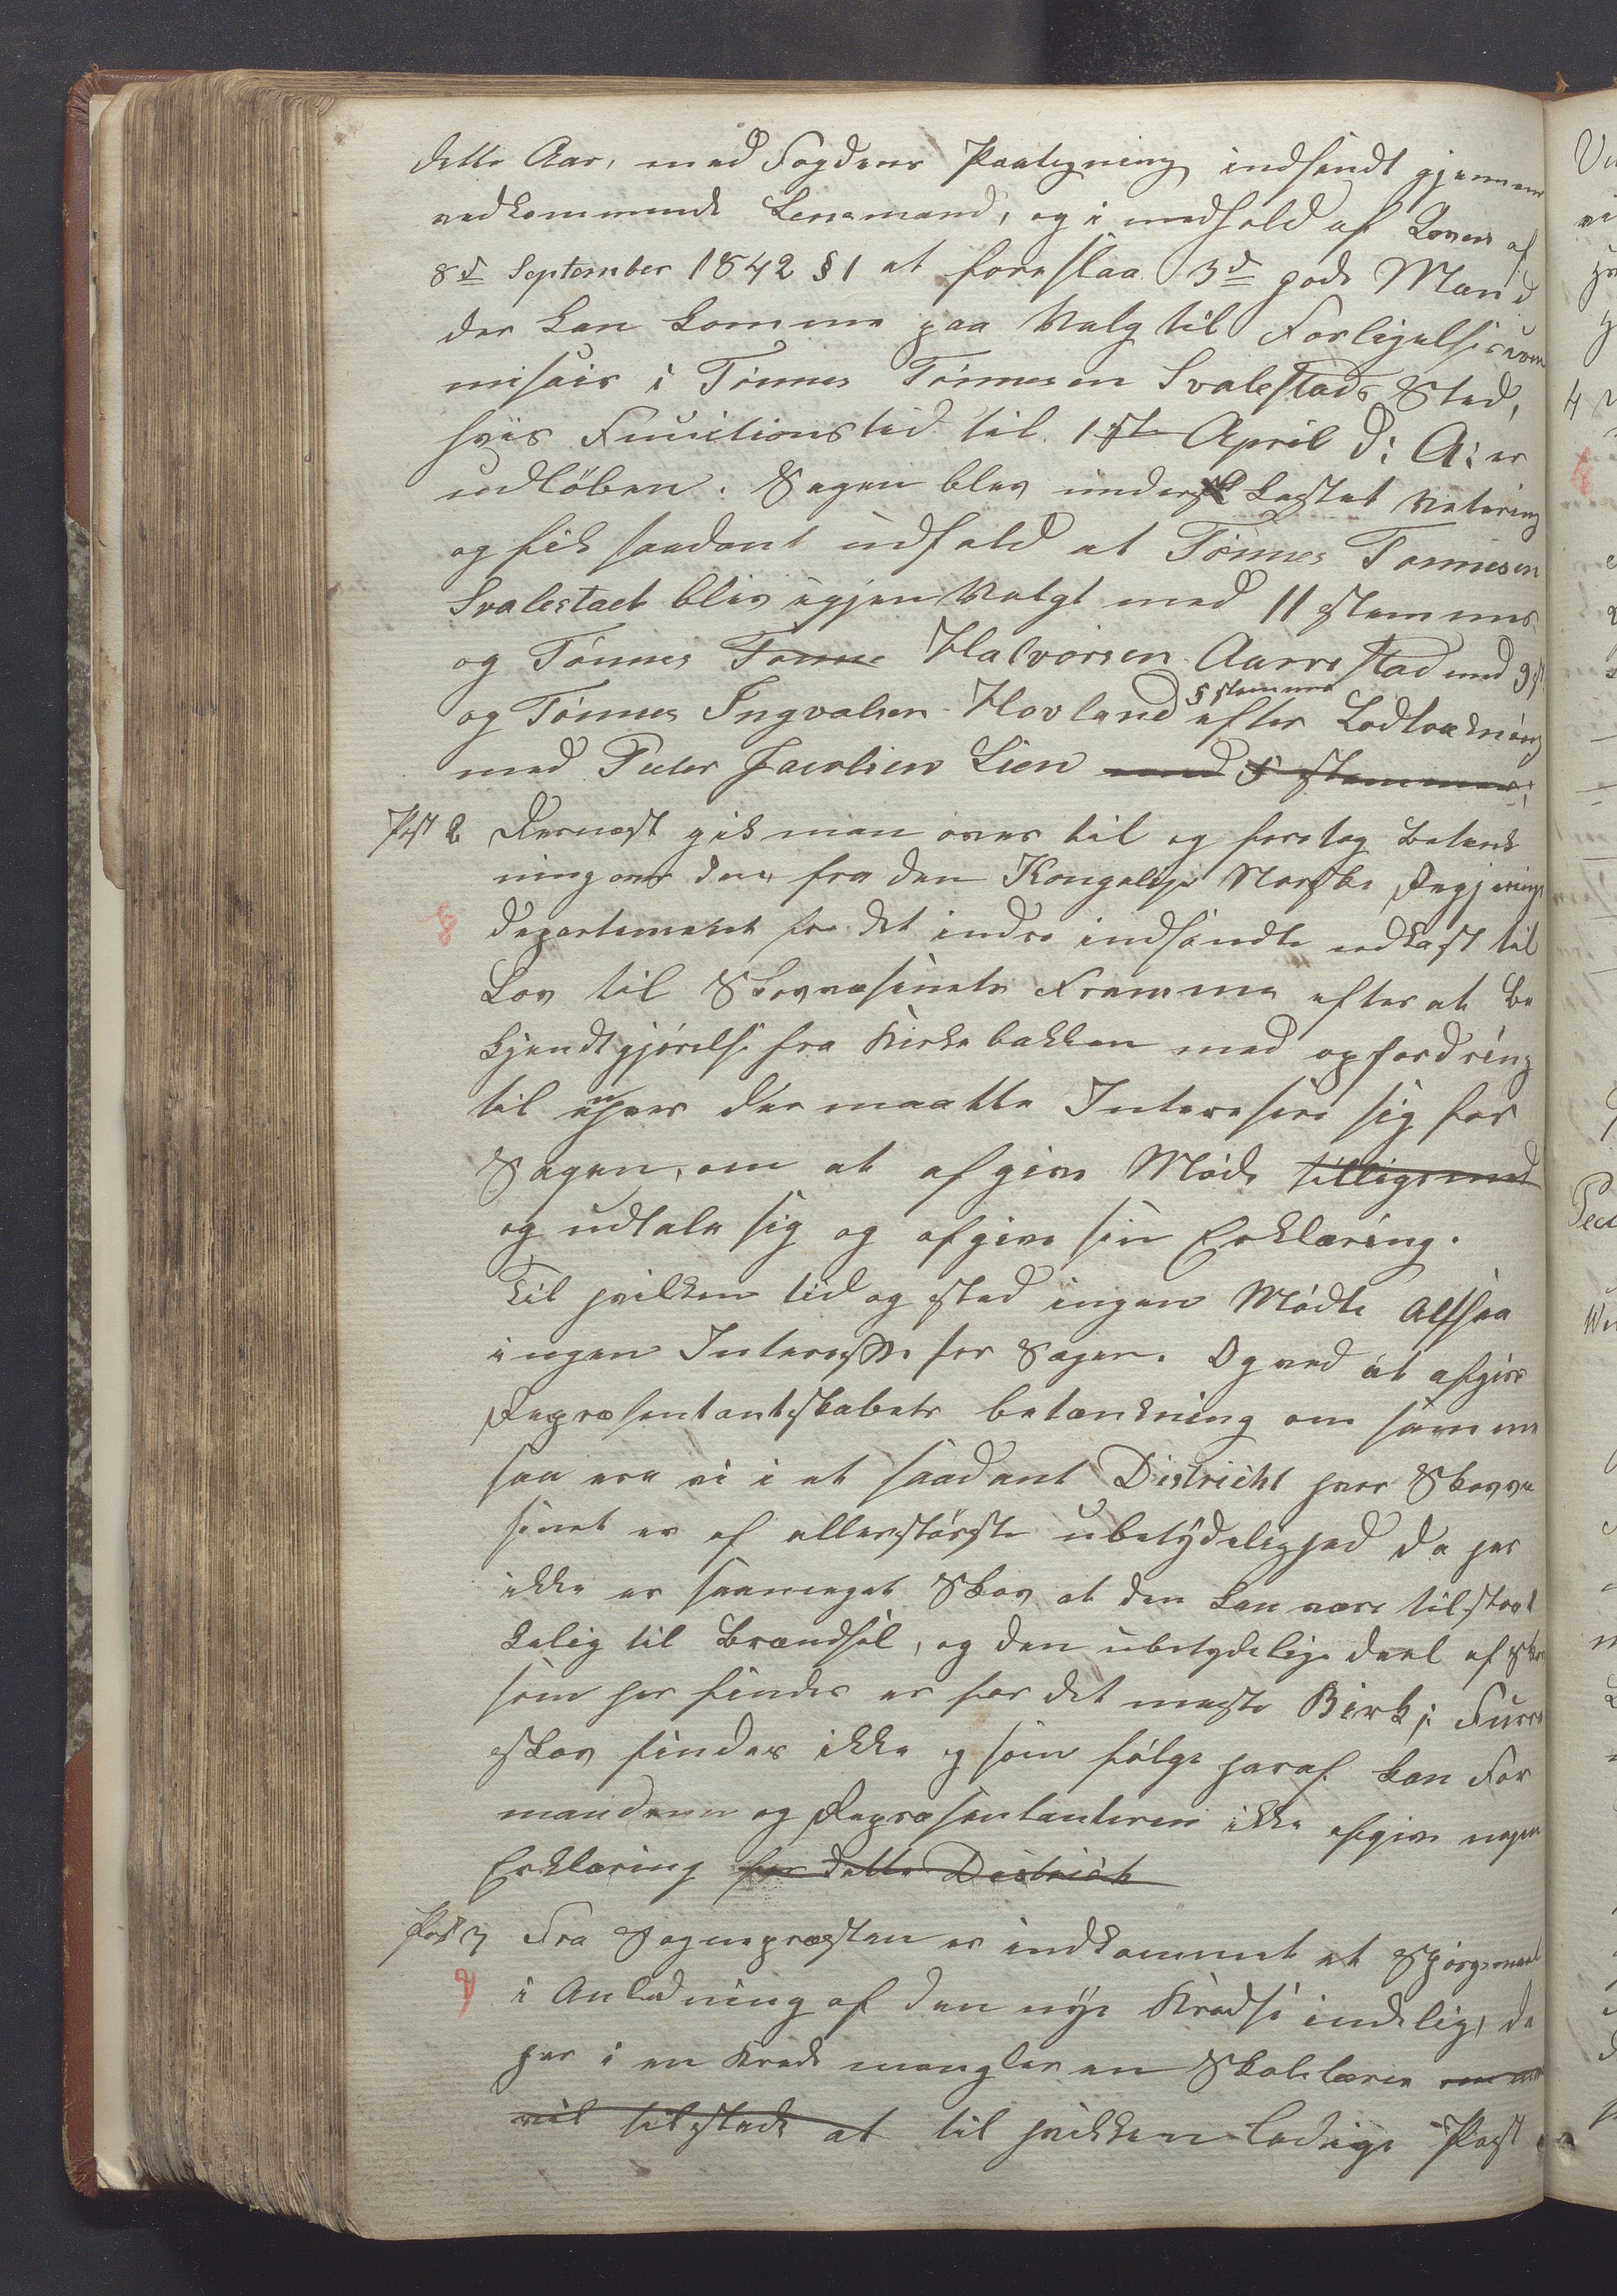 dette Aar, med Fogdens Paategning indsendt gjennem
vedkommende Lensmand, og i medhold af Loven af
8d September 1842 § 1 at foreslaa 3d gode Mænd
der kan komme paa Valg til Forligelsescom
misair i Tønnes Tønnesen Svalestads Sted,
hvis Functionstid til 1ste April d: A: er
udløben. Sagen blev under kastet Votering
og fik saadant udfald at Tønnes Tønnesen
Svalestad blev igjen Valgt med 11 stemmer
og Tønnes Tønne Halvorsen Aarrestad med 9 st.
og Tønnes Ingvalsen Hovland 5 stemmer efter Lodtrækning
med Peder Jacobsen Lien med 5 stemmer;
Post 2 Dernæst gik man over til og foretog Betænk
ning over den fra den Kongelige Norske Regjerings
8 Departementet for det indre indsendte udkast til
Lov til Skovvæsenets Fremme efter at Be
kjendtgjørelse fra Kirkebakken med opfordring
til enhver der maatte Interesere sig for
Sagen, om at afgive Møde tilligemed
og udtale sig og afgive sin Erklæring.
Til hvilken tid og sted ingen Mødte altsaa
ingen Interesse for Sagen. Og ved at afgive
Repræsentantskabets betænkning om samme
saa ere vi i et saadant District hvor Skovvæ
senet er af allerstørste ubetydelighed da her
ikke er saameget Skov at den kan være tilstræk
kelig til Brændsel, og den ubetydelige deel af Skov
som her findes er for det meste Birk; Furre
skov findes ikke og som følge heraf kan For
mændene og Repræsentanterne ikke afgive nogen
Erklæring for dette District
Post 3 Fra Sognepræsten er indkommet et Spørgsmaal
9 i Anledning af den nye Kredse indelig, da
her i en Kreds mangler en Skolelærer om man
vil tilstede at til hvilken ledige Post